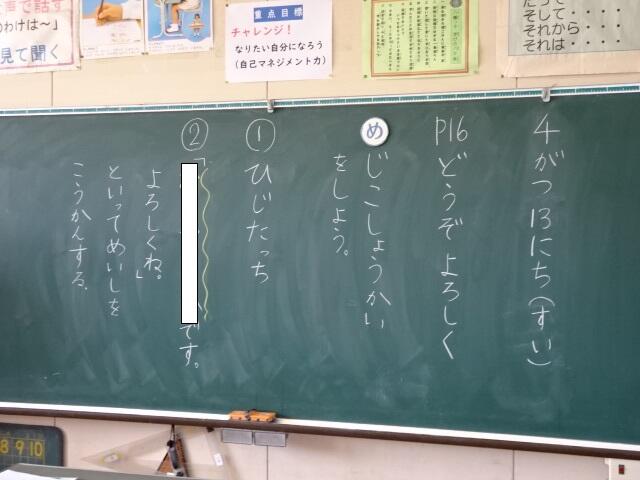 声で話す
のわけは～」
見て聞く
重点目標
チャレンジ！
なりたい自分になろう
（自己マネジメント力）
そして・・・・
それから
それは・・・・
4がつ13にち(すい)
P16どうぞよろしく
め じこしょうかい
をしよう。
① ひじたっち
②「
です。
よろしくね。」
といってめいしを
こうかんする。
8 9 10